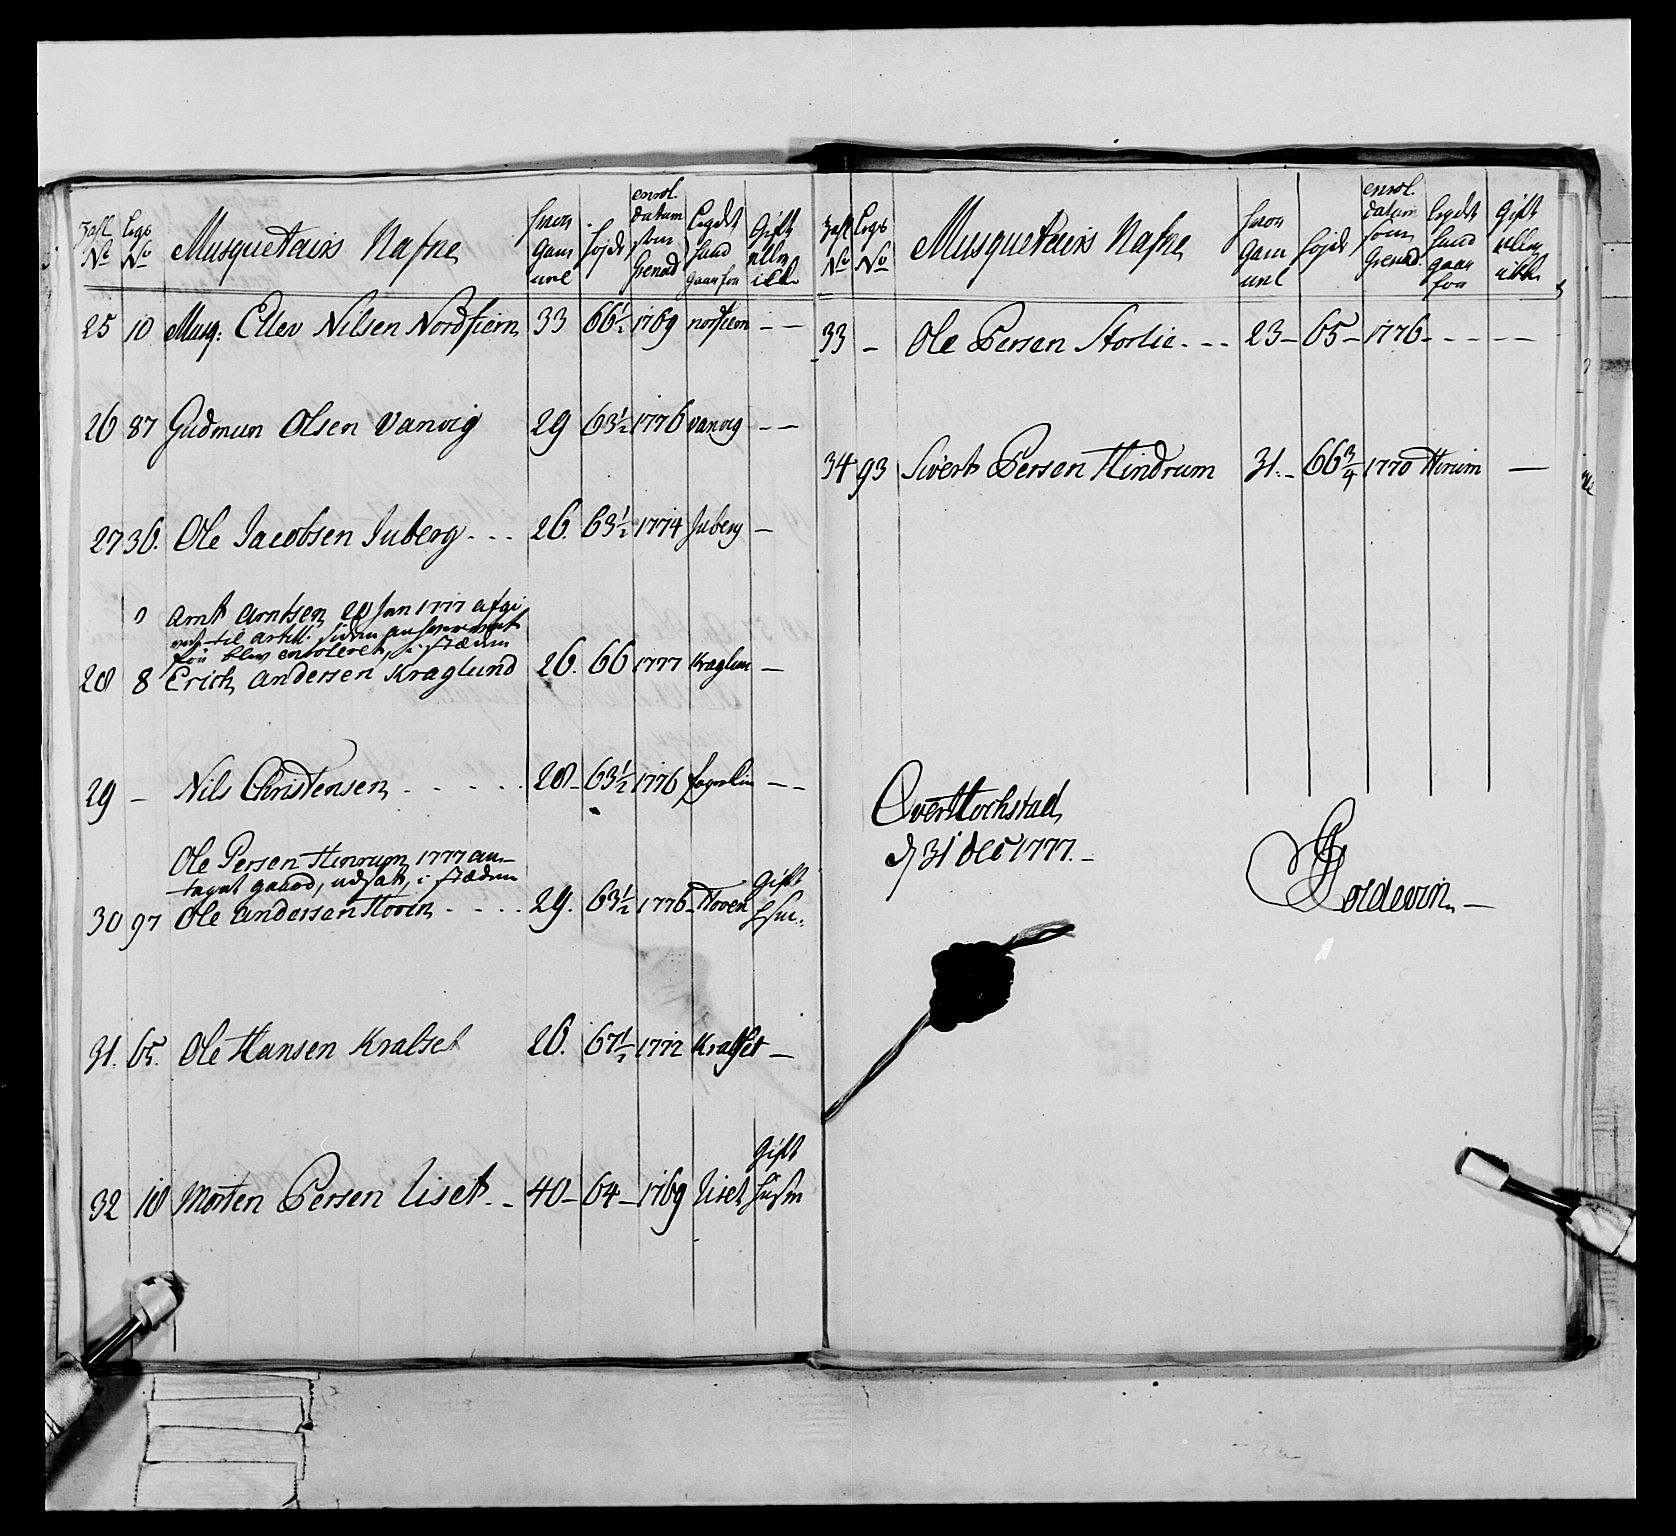 Tahl No | Legs No | Musqueteurs Nafne | hvor gam mel | høyde | enrol. datum som Grenad | Legdet hand gaar for | Gift eller ikke
25 10 Musq: Ellev Nilsen Nordfiern 33 66½ 1769 nordfiern – –
26 87 Gudmun Olsen Vanvig 29 63½ 1776 vanvig – –
27 36. Ole Jacobsen Juberg - - - 26. 63½ 1774 Juberg –
Arnt Arntsen 20 Jan 1777 afgi
vet til artill. siden
for blev enroleret, i stæden
28 8 Erich Andersen Kraglund 26. 66 1777 Kraglun –
29 – Nils Christensen - - - - - 28 – 63½ 1776 – –
Ole Persen Hinrum 1777 an-
taget gaard, udsat, i stæden
30 97 Ole Anderssen Hoven - - - - 29. 63½ 1776 – Hoven Gift
31. 65. Ole Hansen Kralset 26. 67½ 1772 Kralset –
32 18 Morten Persen Liset - - 40 – 64 – 1769 Liset Gift Husm
Tahl No | Legs No | Musqueteurs Nafne | hvor gam mel | høyde | enrol. datum som Grenad | Legdet hand gaar for | Gift eller ikke
33 – Ole Persen Storlie - - - 23 – 65 – 1776 - - - - – –
34 93 Sivert Persen Hindrum 31. – 66¾ 1770 Hinrim –
Over Hochstad
d 31 Dec 1777. –
Coldevin. –